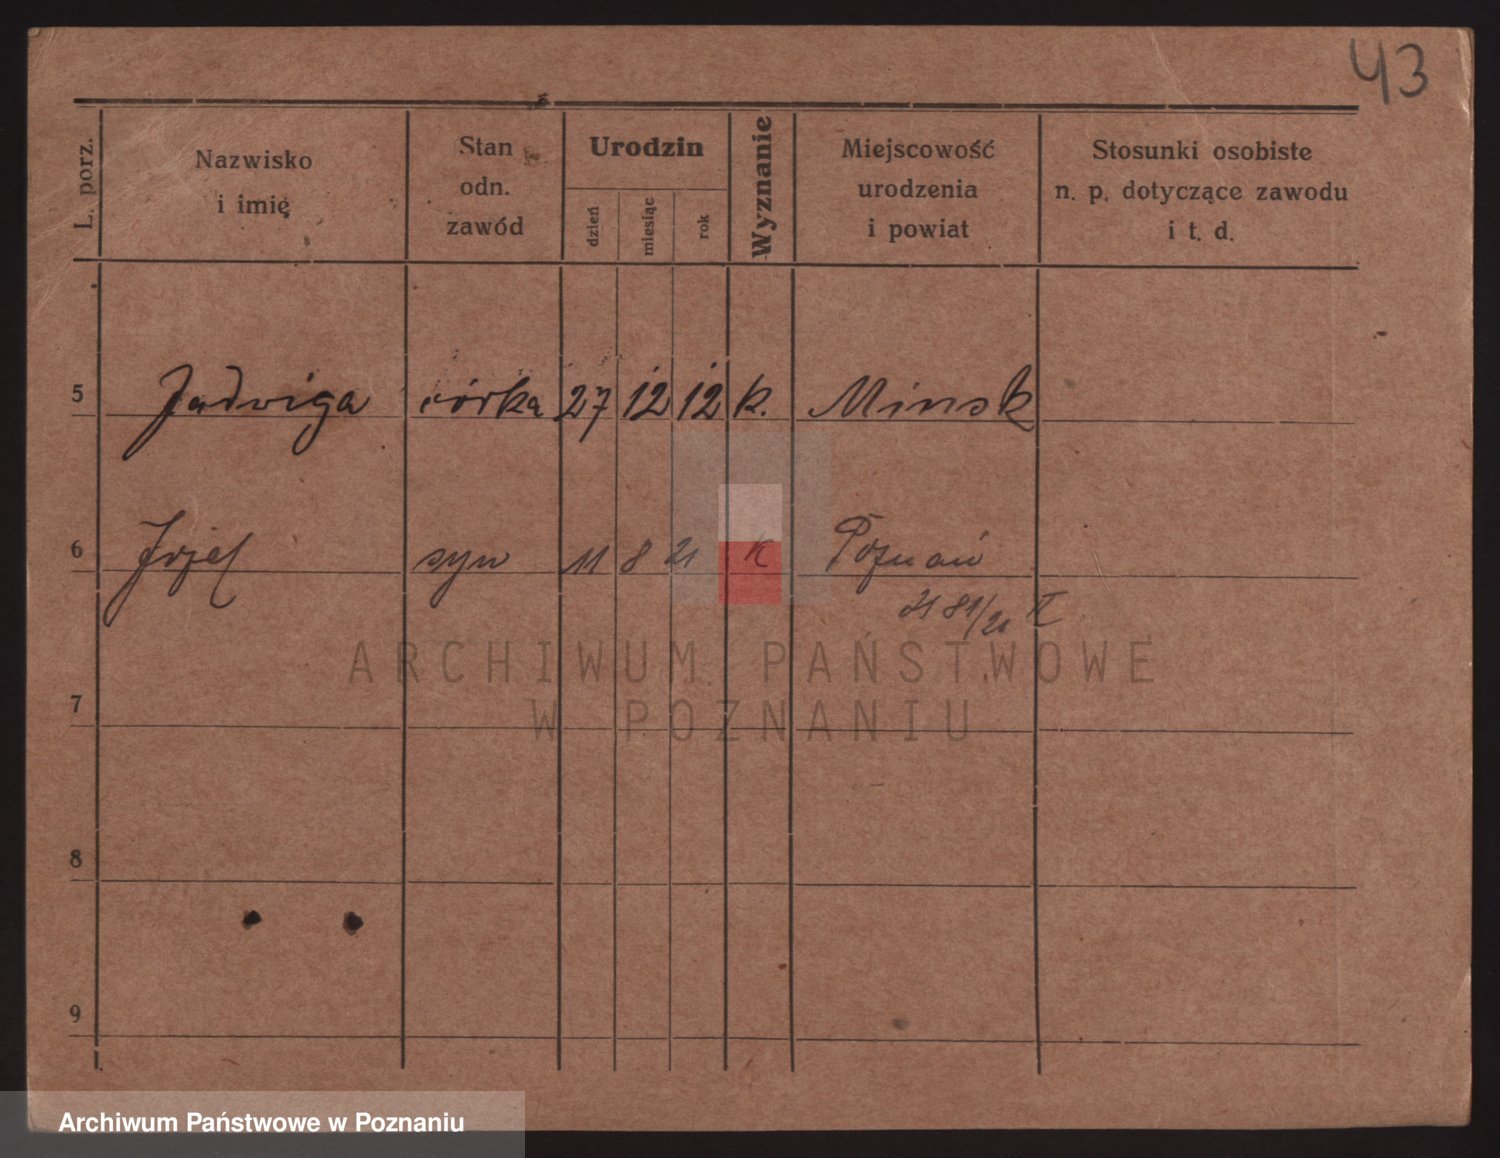 43
L. porz.
Nazwisko
i imię
Stan
odn.
zawód
Urodzin
dzień
miesiąc
rok
Wyznanie
Miejscowość
urodzenia
i powiat
Stosunki osobiste
n. p. dotyczące zawodu
i t. d.
5 Jadwiga córka 27 12 12 k. Minsk
6 Józef syn 11 8 21 K Poznań
81/21 II
ARCHIWUM PAŃSTWOWE
W POZNANIU
7
8
9
Archiwum Państwowe w Poznaniu